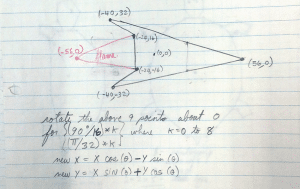 (-40,32)
(-28,16)
(-56,0)
flame
(0,0)
(56,0)
(-28,-16)
(-40,-32)
rotate the above 9 points about 0
for (90°/16)*K where K=0 to 8
(π/32)*K
new X = X cos(θ) - Y sin(θ)
new Y = X sin(θ) + Y cos(θ)